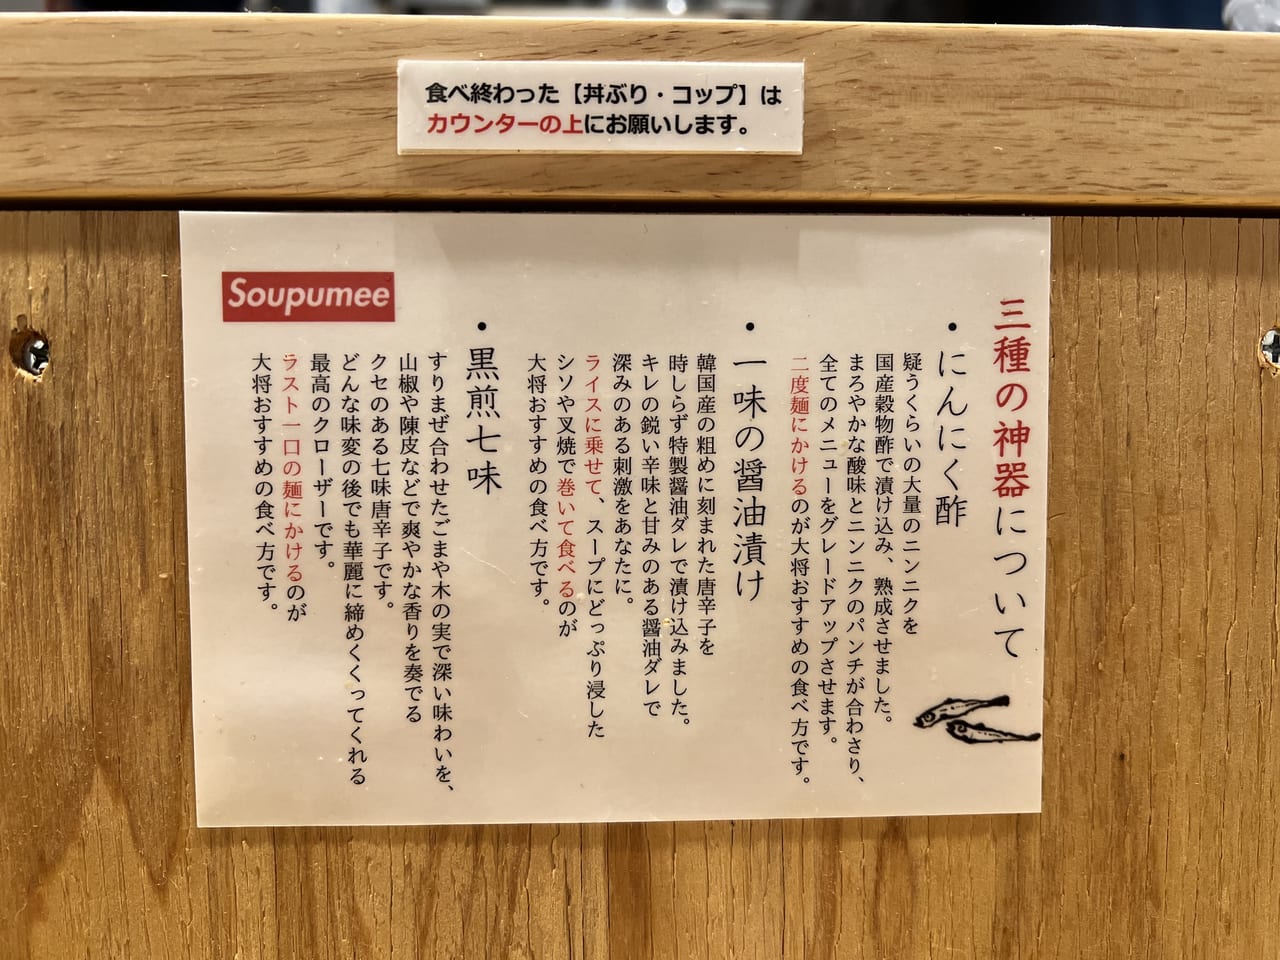 食べ終わった【丼ぶり・コップ】は
カウンターの上にお願いします。
三種の神器について
・にんにく酢
疑うくらいの大量のニンニクを
国産穀物酢で漬け込み、熟成させました。
まろやかな酸味とニンニクのパンチが合わさり、
全てのメニューをグレードアップさせます。
二度麺にかけるのが大将おすすめの食べ方です。
・一味の醤油漬け
韓国産の粗めに刻まれた唐辛子を
時しらず特製醤油ダレで漬け込みました。
キレの鋭い辛味と甘みのある醤油ダレで
深みのある刺激をあなたに。
ライスに乗せて、スープにどっぷり浸した
シソや叉焼で巻いて食べるのが
大将おすすめの食べ方です。
・黒煎七味
すりまぜ合わせたごまや木の実で深い味わいを、
山椒や陳皮などで爽やかな香りを奏でる
クセのある七味唐辛子です。
どんな味変の後でも華麗に締めくくってくれる
最高のクローザーです。
ラスト一口の麺にかけるのが
大将おすすめの食べ方です。
Soupumee